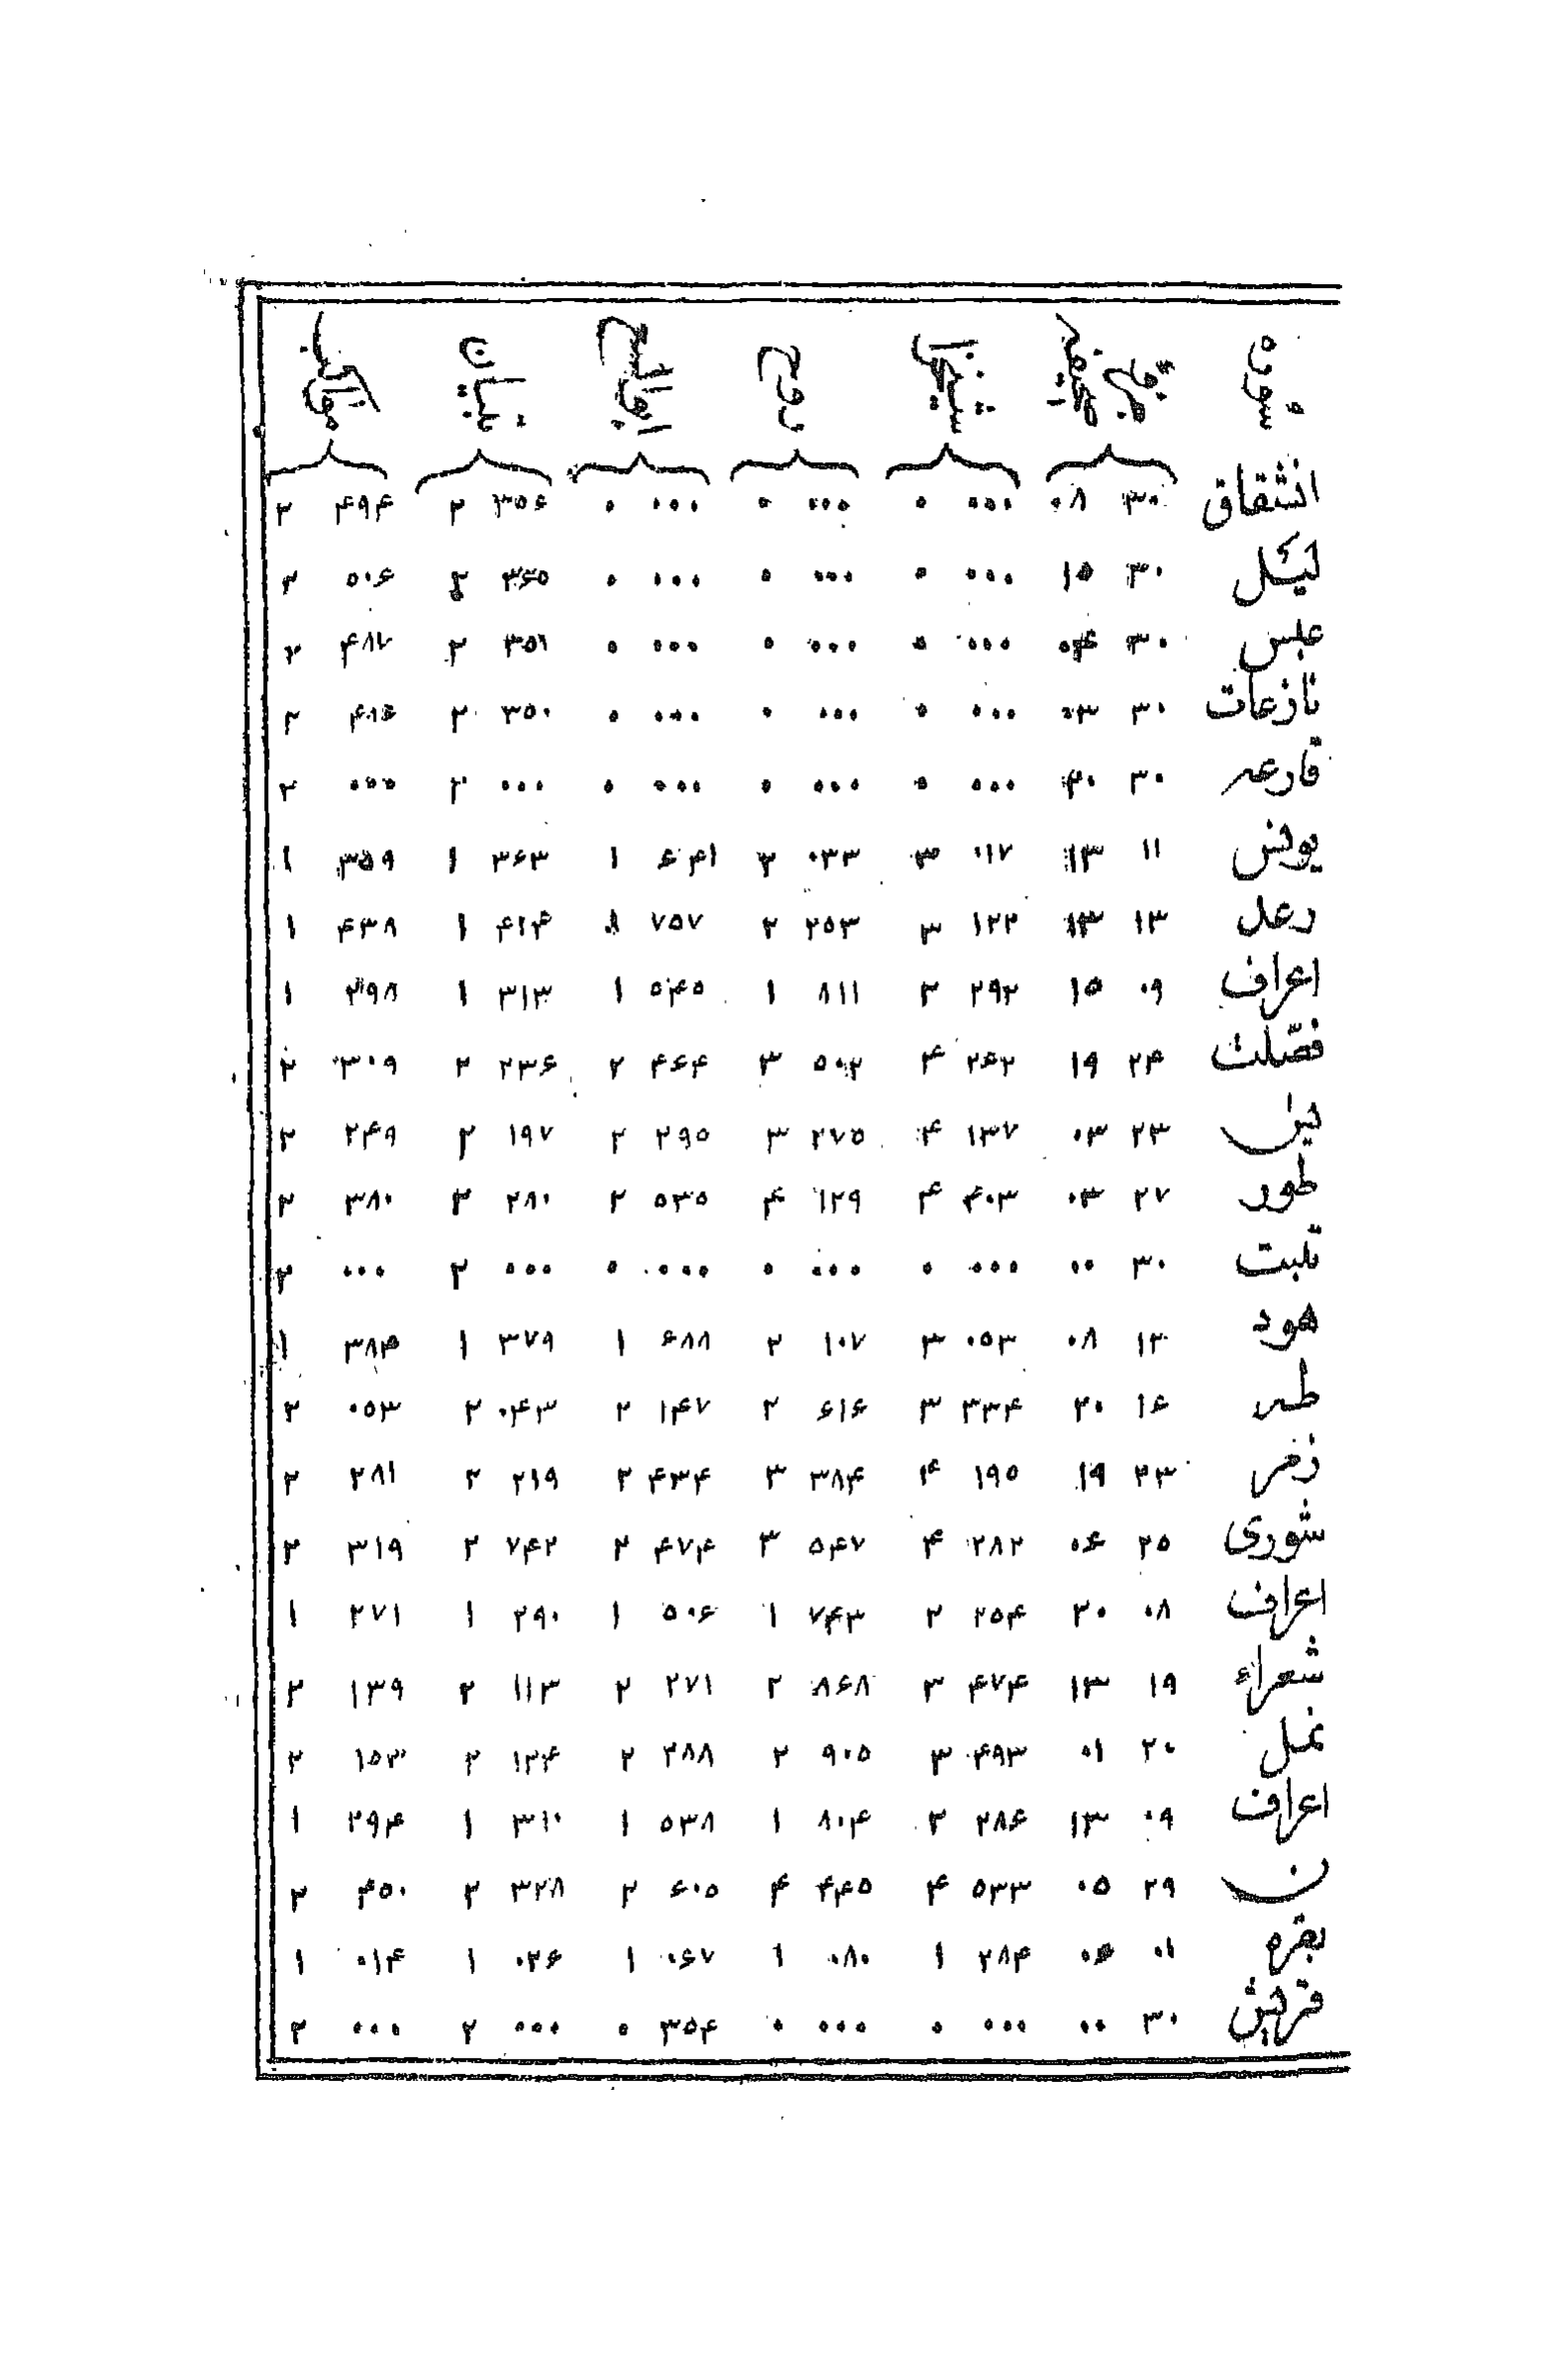 سوره شیخ روح ابوالفتوح تبیان مواهب
انشقاق ۳۰ ۰۸ ۰۰۰ ۰ ۰۰۰ ۰ ۰۰۰ ۰ ۳۵۶ ۲ ۴۹۴ ۲
لیل ۳۰ ۱۵ ۰۰۰ ۰ ۰۰۰ ۰ ۰۰۰ ۰ ۳۶۵ ۲ ۵۰۶ ۲
عبس ۳۰ ۰۴ ۰۰۰ ۰ ۰۰۰ ۰ ۰۰۰ ۰ ۳۵۱ ۲ ۴۸۷ ۲
نازعات ۳۰ ۰۳ ۰۰۰ ۰ ۰۰۰ ۰ ۰۰۰ ۰ ۳۵۰ ۲ ۲
قارعه ۳۰ ۲۰ ۰۰۰ ۰ ۰۰۰ ۰ ۰۰۰ ۰ ۰۰۰ ۲ ۰۰۰ ۲
یونس ۱۱ ۱۳ ۰۱۷ ۳ ۰۳۳ ۲ ۶۴۱ ۱ ۳۶۳ ۱ ۳۵۹ ۱
رعد ۱۳ ۱۳ ۱۲۲ ۳ ۲۵۳ ۲ ۷۵۷ ۱ ۴۱۴ ۱ ۴۳۸ ۱
اعراف ۰۹ ۱۵ ۲۹۲ ۲ ۸۱۱ ۱ ۵۴۵ ۱ ۳۱۳ ۱ ۲۹۸ ۱
فصّلت ۲۴ ۱۹ ۲۶۲ ۴ ۵۰۲ ۳ ۴۶۴ ۲ ۲۳۶ ۲ ۳۰۹ ۲
یس ۲۳ ۰۳ ۱۳۷ ۴ ۲۷۵ ۳ ۲۹۵ ۲ ۱۹۷ ۲ ۲۴۹ ۲
طور ۲۷ ۰۳ ۴۰۳ ۴ ۱۲۹ ۴ ۵۳۵ ۲ ۲۸۰ ۲ ۳۸۰ ۲
تبت ۳۰ ۰۰ ۰۰۰ ۰ ۰۰۰ ۰ ۰۰۰ ۰ ۰۰۰ ۲ ۰۰۰ ۲
هود ۱۲ ۰۸ ۰۵۳ ۳ ۱۰۷ ۲ ۶۸۸ ۱ ۳۷۹ ۱ ۳۸۴ ۱
طه ۱۶ ۲۰ ۳۳۴ ۳ ۶۱۶ ۲ ۱۴۷ ۲ ۰۴۳ ۲ ۰۵۳ ۲
زمر ۲۳ ۱۹ ۱۹۵ ۴ ۳۸۴ ۳ ۴۳۴ ۲ ۲۱۹ ۲ ۲۸۱ ۲
شوری ۲۵ ۰۶ ۲۸۲ ۴ ۵۴۷ ۳ ۴۷۴ ۲ ۷۴۲ ۲ ۳۱۹ ۲
اعراف ۰۸ ۲۰ ۲۵۴ ۲ ۷۴۳ ۱ ۵۰۶ ۱ ۲۹۰ ۱ ۲۷۱ ۱
شعراء ۱۹ ۱۳ ۴۷۴ ۳ ۸۶۸ ۲ ۲۷۱ ۲ ۱۱۳ ۲ ۱۳۹ ۲
نمل ۲۰ ۰۱ ۴۹۳ ۳ ۹۰۵ ۲ ۲۸۸ ۲ ۱۲۴ ۲ ۱۵۳ ۲
اعراف ۰۹ ۱۳ ۲۸۶ ۲ ۸۰۴ ۱ ۵۳۸ ۱ ۳۱۰ ۱ ۲۹۴ ۱
ن ۲۹ ۰۵ ۵۳۳ ۴ ۴۴۵ ۴ ۶۰۵ ۲ ۳۲۸ ۲ ۴۵۰ ۲
بقره ۰۱ ۰۶ ۲۸۴ ۱ ۰۸۰ ۱ ۰۶۷ ۱ ۰۲۶ ۱ ۰۱۴ ۱
قریش ۳۰ ۰۰ ۰۰۰ ۰ ۰۰۰ ۰ ۳۵۴ ۰ ۰۰۰ ۲ ۰۰۰ ۲